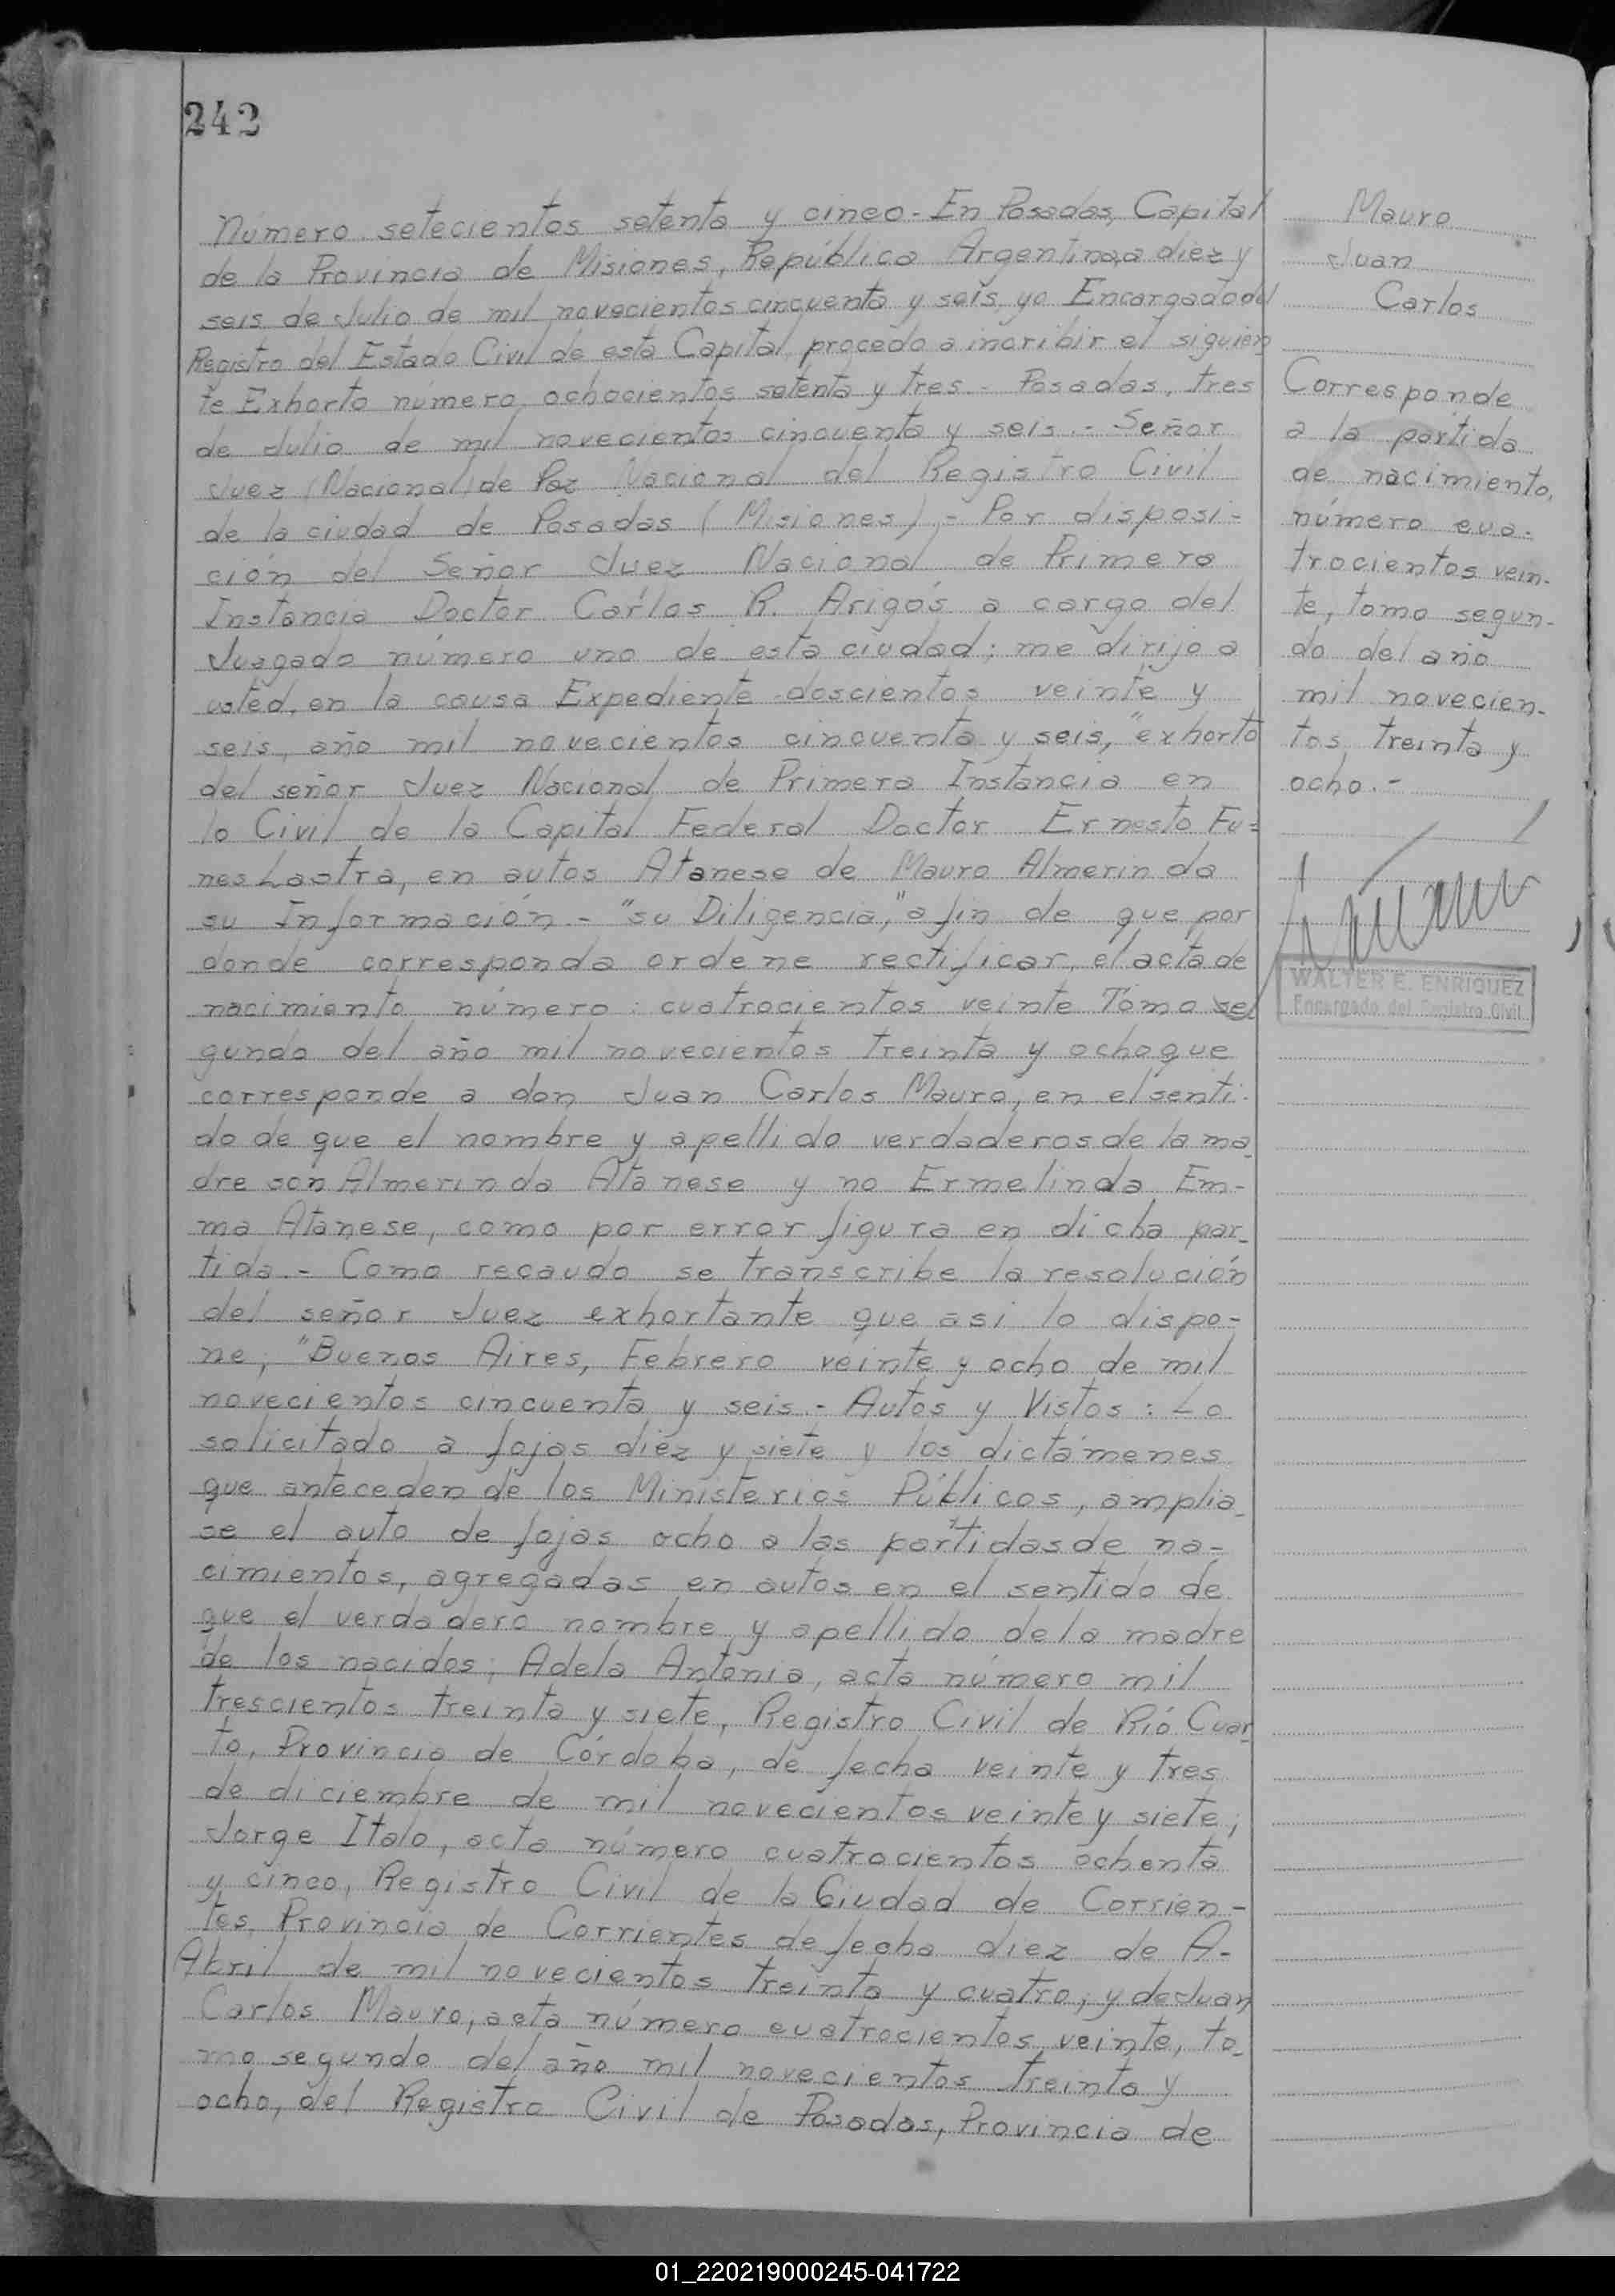 242
Número setecientos setenta y cinco - En Posadas, Capital
de la Provincia de Misiones, República Argentina, a diez y
seis de Julio de mil novecientos cincuenta y seis, yo Encargado del
Registro del Estado Civil de esta Capital, procedo a incribir el siguien
te Exhorto número ochocientos setenta y tres.- Posadas, tres
de Julio de mil novecientos cincuenta y seis.- Señor
Juez (Nacional) de Paz Nacional del Registro Civil
de la ciudad de Posadas (Misiones).- Por disposi-
ción del Señor Juez Nacional de Primera
Instancia Doctor Carlos R. Arigós a cargo del
Juzgado número uno de esta ciudad; me dirijo a
usted, en la causa Expediente doscientos veinte y
seis, año mil novecientos cincuenta y seis, "exhorto
del señor Juez Nacional de Primera Instancia en
lo Civil de la Capital Federal Doctor Ernesto Fu=
nes Lastra, en autos Atanese de Mauro Almerinda
su Información.- "su Diligencia," a fin de que por
donde corresponda ordene rectificar, el acta de
nacimiento número: cuatrocientos veinte Tomo se
gundo del año mil novecientos treinta y ocho que
corresponde a don Juan Carlos Mauro, en el senti-
do de que el nombre y apellido verdaderos de la ma_
dre son Almerinda Atanese y no Ermelinda Em-
ma Atanese, como por error figura en dicha par_
tida.- Como recaudo se transcribe la resolución
del señor Juez exhortante que asi lo dispo-
ne; "Buenos Aires, Febrero veinte y ocho de mil
novecientos cincuenta y seis.- Autos y Vistos: Lo
solicitado a fojas diez y siete y los dictámenes
que anteceden de los Ministerios Públicos, amplia_
se el auto de fojas ocho a las partidas de na-
cimientos, agregadas en autos en el sentido de
que el verdadero nombre y apellido de la madre
de los nacidos; Adela Antonia, acta número mil
trescientos treinta y siete, Registro Civil de Rió Cuar_
to, Provincia de Córdoba, de fecha veinte y tres
de diciembre de mil novecientos veinte y siete;
Jorge Italo, acta número cuatrocientos ochenta
y cinco, Registro Civil de la Ciudad de Corrien-
tes, Provincia de Corrientes de fecha diez de A-
Abril de mil novecientos treinta y cuatro; y de Juan
Carlos Mauro, acta número cuatrocientos veinte, to_
mo segundo del año mil novecientos treinta y
ocho, del Registro Civil de Posadas, Provincia de
Mauro
Juan
Carlos
Corresponde
a la partida
de nacimiento,
número cua-
trocientos vein-
te, tomo segun-
do del año
mil novecien-
tos treinta y
ocho.-
WALTER E. ENRIQUEZ
Encargado del Registro Civil
01_220219000245-041722